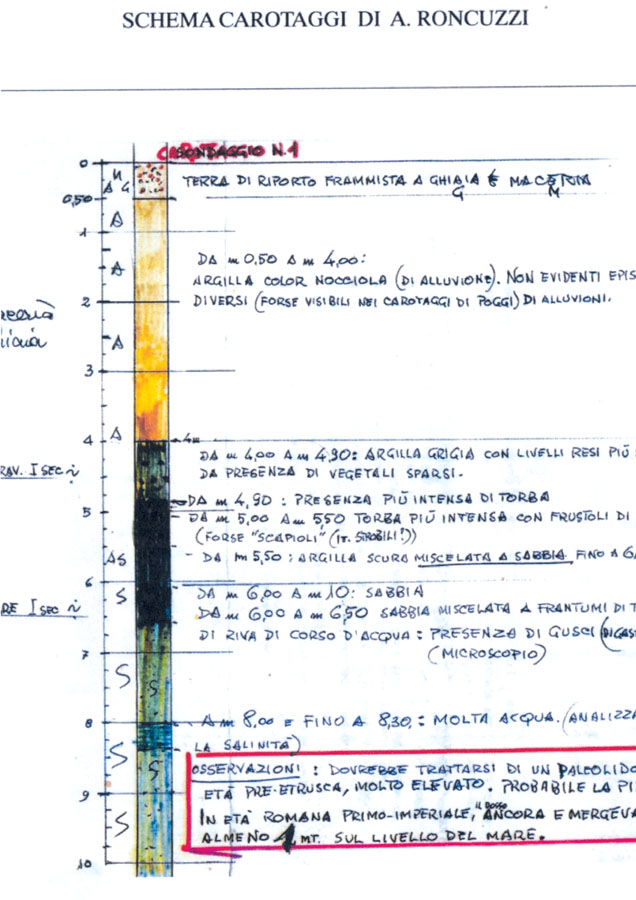 SCHEMA CAROTAGGI DI A. RONCUZZI
SONDAGGIO N.1
0
0,50
1
2
3
4
5
6
7
8
9
10
A G
A
A
A
A
AS
S
S
S
S
S
S
TERRA DI RIPORTO FRAMMISTA A GHIAIA E MACERIA
G M
DA m 0,50 A m 4,00:
ARGILLA COLOR NOCCIOLA (DI ALLUVIONE). NON EVIDENTI EPIS
DIVERSI (FORSE VISIBILI NEI CAROTAGGI DI POGGI) DI ALLUVIONI.
4m
DA m 4,00 A m 4,90: ARGILLA GRIGIA CON LIVELLI RESI PIÙ
DA PRESENZA DI VEGETALI SPARSI.
RAV. I SEC
DA m 4,90 : PRESENZA PIÙ INTENSA DI TORBA
- DA m 5,00 A m 5,50 TORBA PIÙ INTENSA CON FRUSTOLI DI
(FORSE "SCAPIOLI" (IT. STROBILI!))
- DA m 5,50 : ARGILLA SCURA MISCELATA A SABBIA FINO A 6,
DA m 6,00 A m 10: SABBIA
RE I SEC
DA m 6,00 A m 6,50 SABBIA MISCELATA A FRANTUMI DI T
DI RIVA DI CORSO D'ACQUA : PRESENZA DI GUSCI (DI GAS
(MICROSCOPIO)
A m 8,00 E FINO A 8,30,: MOLTA ACQUA. (ANALIZZA
LA SALINITÀ)
OSSERVAZIONI : DOVREBBE TRATTARSI DI UN PALEOLIDO
ETÀ PRE-ETRUSCA, MOLTO ELEVATO. PROBABILE LA PI
IN ETÀ ROMANA PRIMO-IMPERIALE, IL DOSSO ANCORA EMERGEVA
ALMENO 1 MT. SUL LIVELLO DEL MARE.